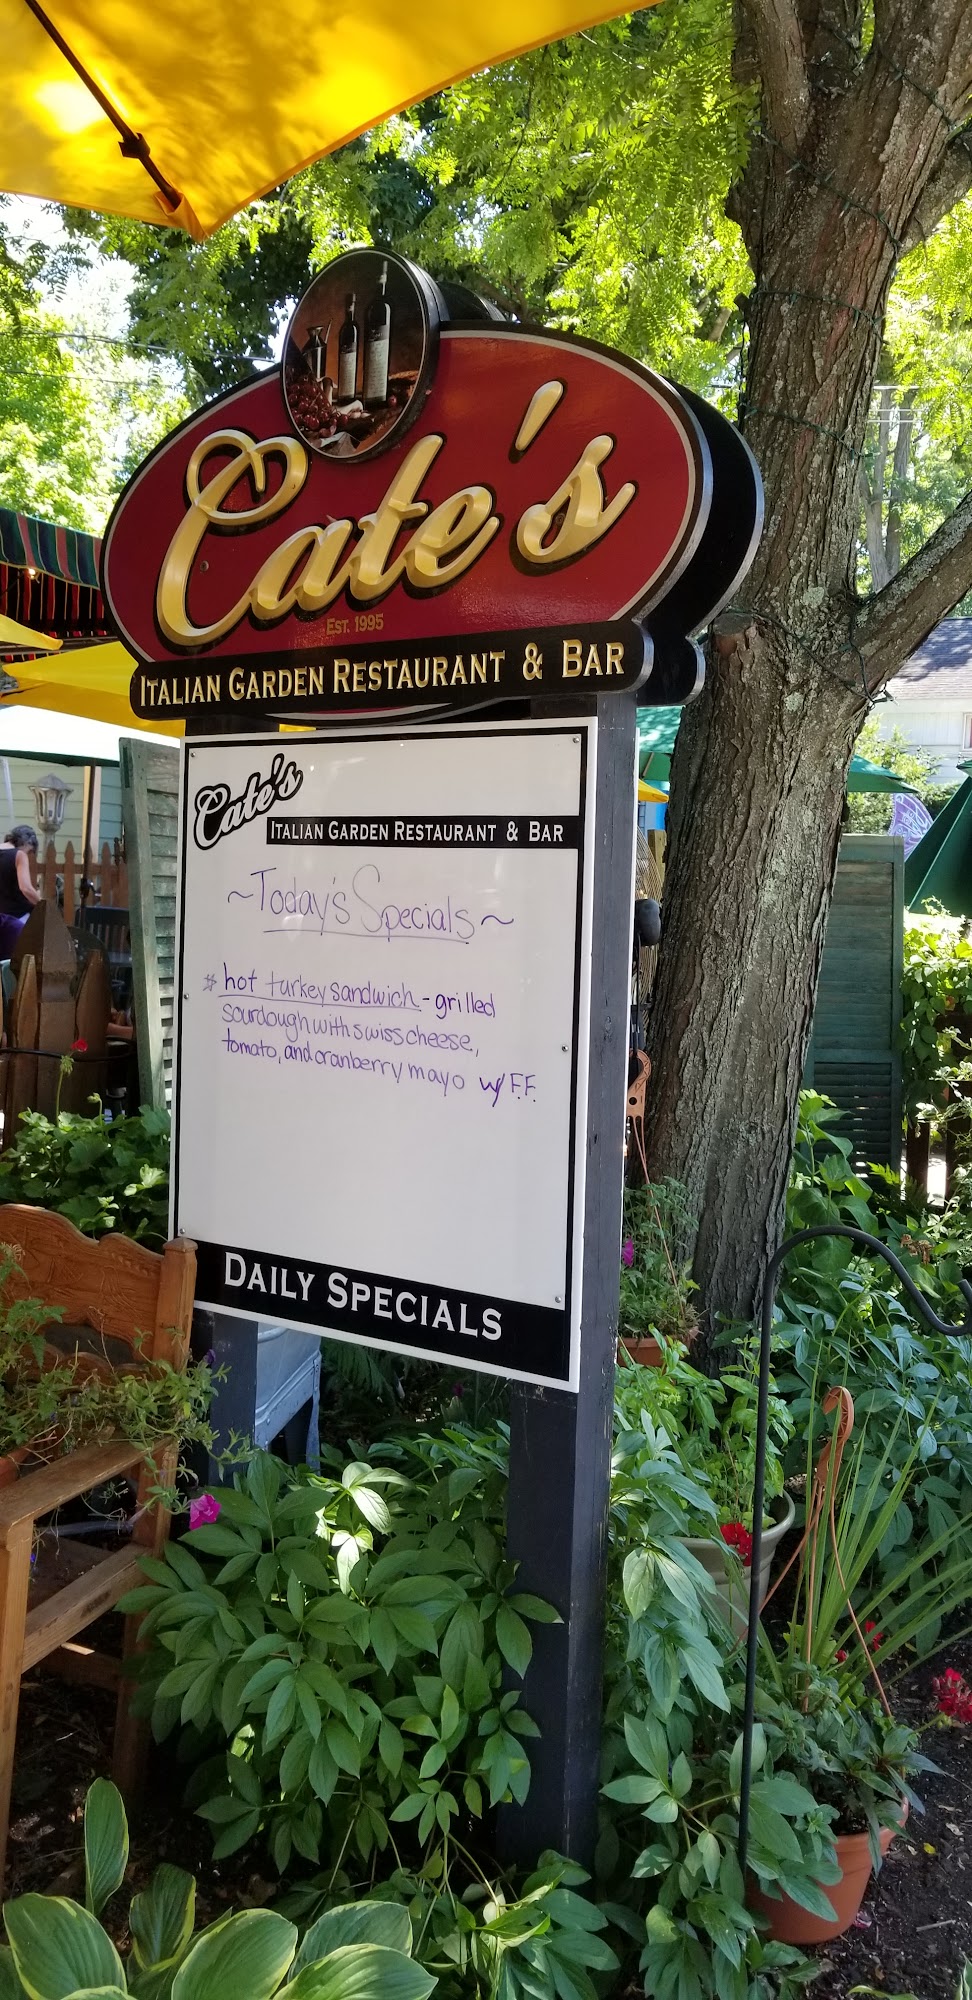 Cate's
Est. 1995
Italian Garden Restaurant & Bar
Cate's
Italian Garden Restaurant & Bar
~Today's Specials~
* hot turkey sandwich - grilled
sourdough with swiss cheese,
tomato, and cranberry mayo w/ F.F.
Daily Specials